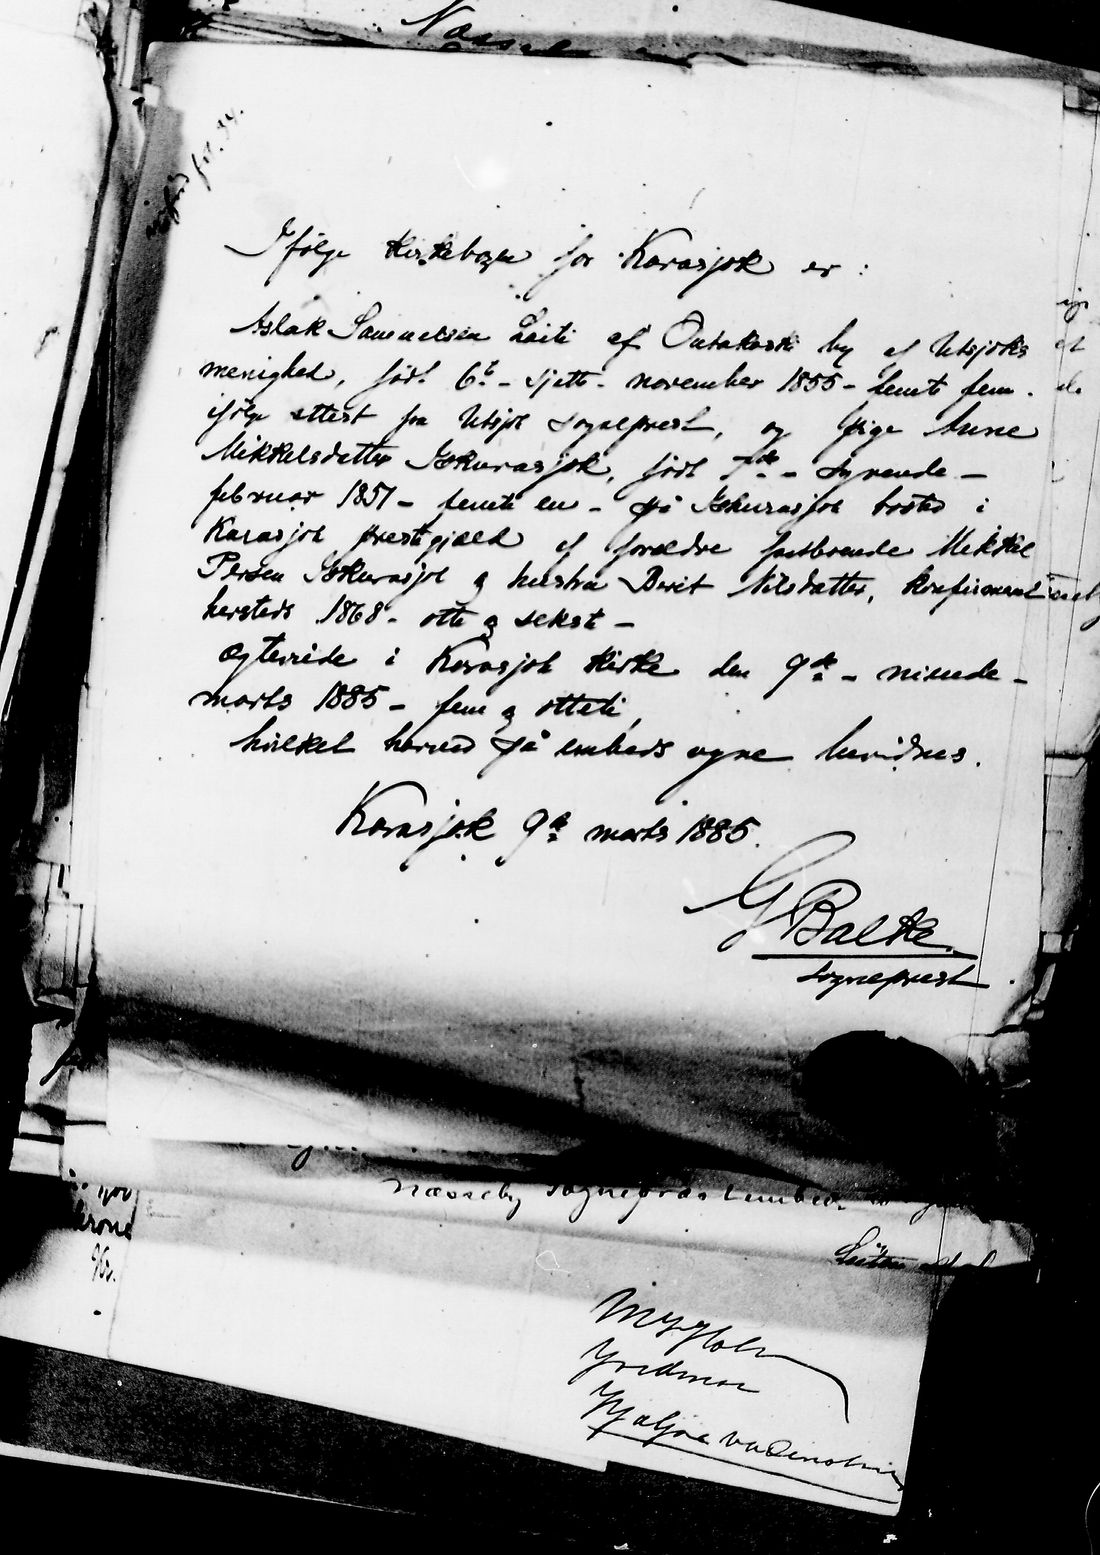 Ifølge kirkebogen for Karasjok er:
Aslak Samuelsen Laiti af Outakoski by af Utsjoks
menighed, født 6te - sjette - november 1855 - femti fem -
ifølge attest fra Utsjok sogneprest, og pige Anne
Mikkelsdatter Iskurasjok, født 7de - syvende -
februar 1851 - femti en - på Iskurasjok bosted i
Karasjok prestegjæld af forældre fastboende Mikkel
Persen Iskurasjok og hustru Berit Nilsdatter, konfirmeret
hersteds 1868 - otte og sekst -
ægteviede i Karasjok kirke den 9de - niende -
marts 1885 - fem og otteti,
hvilket herved på embeds vegne bevidnes.
Karasjok 9de marts 1885.
G Balke
sogneprest
Næsseby
krone